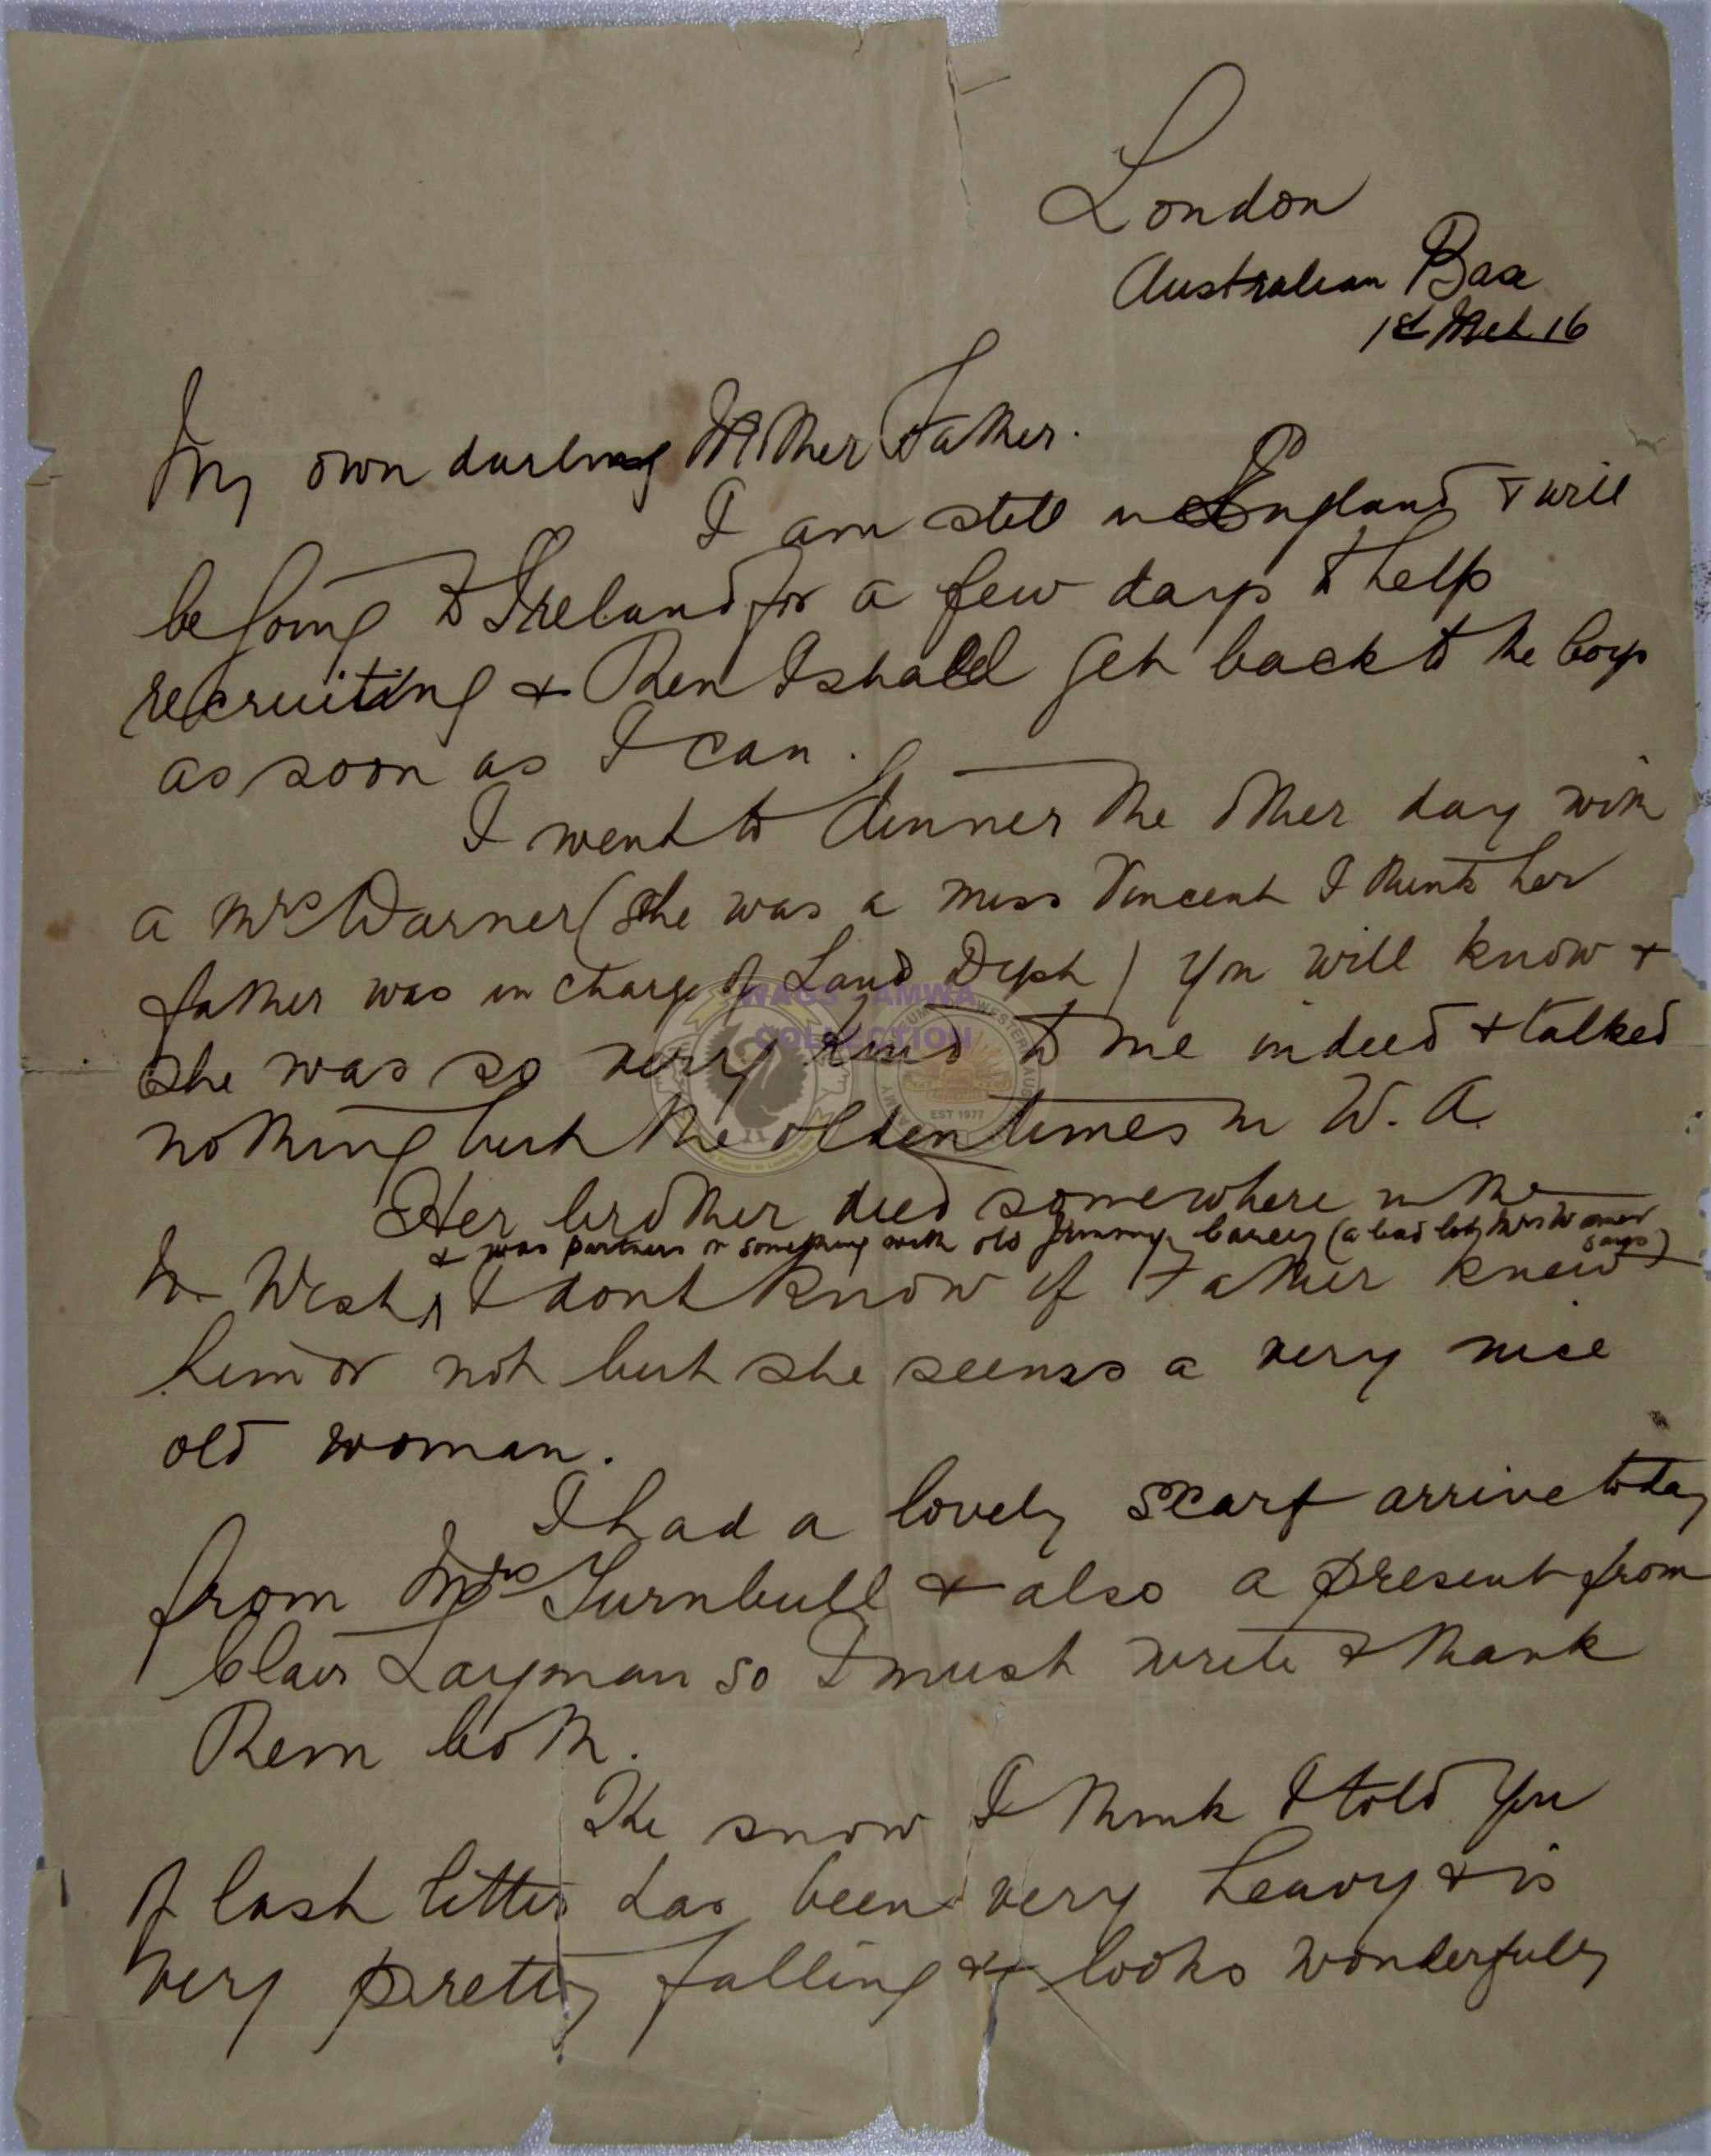 London
Australian Base
1st Mch 16
My own darling Mother Father.
I am still in England & will
be going to Ireland for a few days to help
recruiting & then I shall get back to the boys
as soon as I can.
I went to dinner the other day with
a Mrs Warner (she was a Miss Vincent I think her
father was in charge of Land Dept) you will know &
she was so very kind to me indeed & talked
nothing but the olden times in W. A.
Her brother died somewhere in the
& was partners or something with old Jimmy (a bad lot Mrs Warner says)
N West, I dont know if Father knew
him or not but she seems a very nice
old woman.
I had a lovely scarf arrive today
from Mrs Turnbull & also a present from
Clair Layman so I must write & thank
them both.
The snow I think I told you
of last letter has been very heavy & is
very pretty falling & looks wonderfully
WAGS - AMWA
COLLECTION
EST 1977